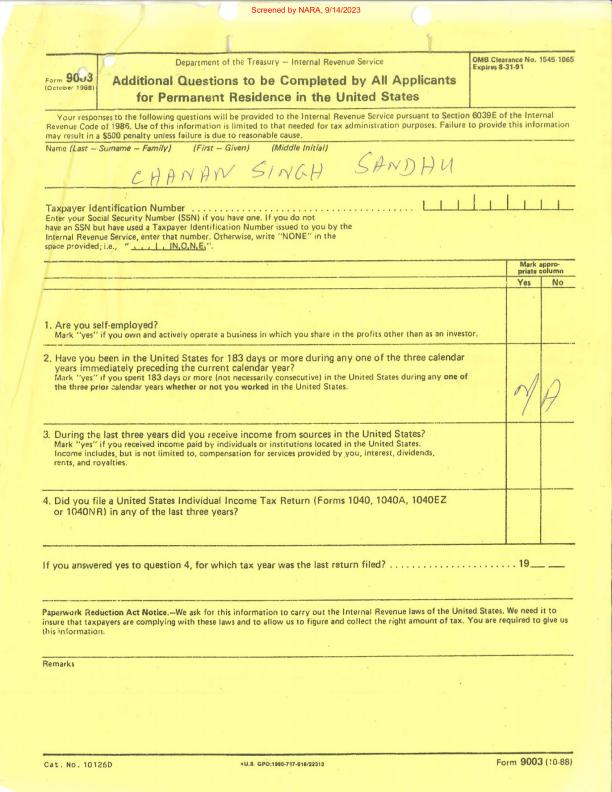 Screened by NARA, 9/14/2023
Form 9003
(October 1988)
Department of the Treasury — Internal Revenue Service
Additional Questions to be Completed by All Applicants
for Permanent Residence in the United States
OMB Clearance No. 1545-1065
Expires 8-31-91
Your responses to the following questions will be provided to the Internal Revenue Service pursuant to Section 6039E of the Internal
Revenue Code of 1986. Use of this information is limited to that needed for tax administration purposes. Failure to provide this information
may result in a $500 penalty unless failure is due to reasonable cause.
Name (Last — Surname — Family) (First — Given) (Middle Initial)
CHANAN SINGH SANDHU
Taxpayer Identification Number
Enter your Social Security Number (SSN) if you have one. If you do not
have an SSN but have used a Taxpayer Identification Number issued to you by the
Internal Revenue Service, enter that number. Otherwise, write "NONE" in the
space provided; i.e., " , , , , , IN,O,N,E,".
Mark appro-
priate column
Yes No
1. Are you self-employed?
Mark "yes" if you own and actively operate a business in which you share in the profits other than as an investor.
2. Have you been in the United States for 183 days or more during any one of the three calendar
years immediately preceding the current calendar year?
Mark "yes" if you spent 183 days or more (not necessarily consecutive) in the United States during any one of
the three prior calendar years whether or not you worked in the United States.
N/A
3. During the last three years did you receive income from sources in the United States?
Mark "yes" if you received income paid by individuals or institutions located in the United States.
Income includes, but is not limited to, compensation for services provided by you, interest, dividends,
rents, and royalties.
4. Did you file a United States Individual Income Tax Return (Forms 1040, 1040A, 1040EZ
or 1040NR) in any of the last three years?
If you answered yes to question 4, for which tax year was the last return filed? ...................... 19__ __
Paperwork Reduction Act Notice.—We ask for this information to carry out the Internal Revenue laws of the United States. We need it to
insure that taxpayers are complying with these laws and to allow us to figure and collect the right amount of tax. You are required to give us
this information.
Remarks
Cat. No. 10126D
*U.S. GPO:1990-717-916/22313
Form 9003 (10-88)